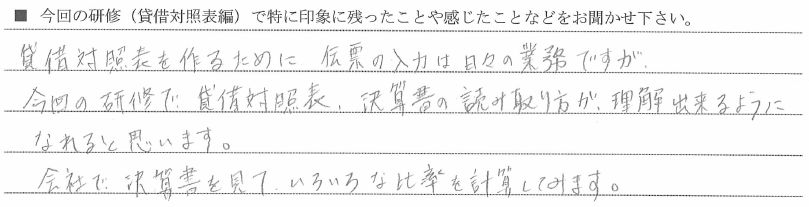 ■ 今回の研修（貸借対照表編）で特に印象に残ったことや感じたことなどをお聞かせ下さい。
貸借対照表を作るために 伝票の入力は日々の業務ですが、
今回の研修で 貸借対照表、決算書の読み取り方が、理解出来るように
なれると思います。
会社で 決算書を見て、いろいろな比率を計算してみます。